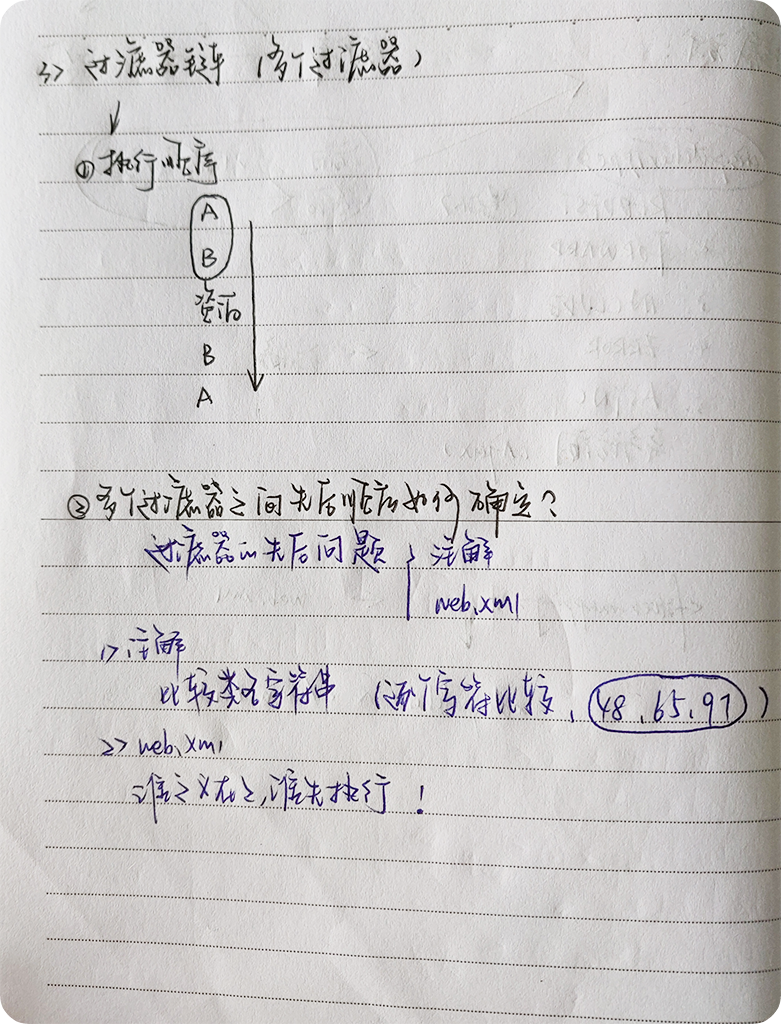 3> 过滤器链 (多个过滤器)
① 执行顺序
A
B
资源
B
A
② 多个过滤器之间先后顺序如何确定?
过滤器的先后问题 注解
web.xml
1> 注解
比较类名字符串 (逐个字符比较、48、65、97)
2> web.xml
谁定义在上,谁先执行!